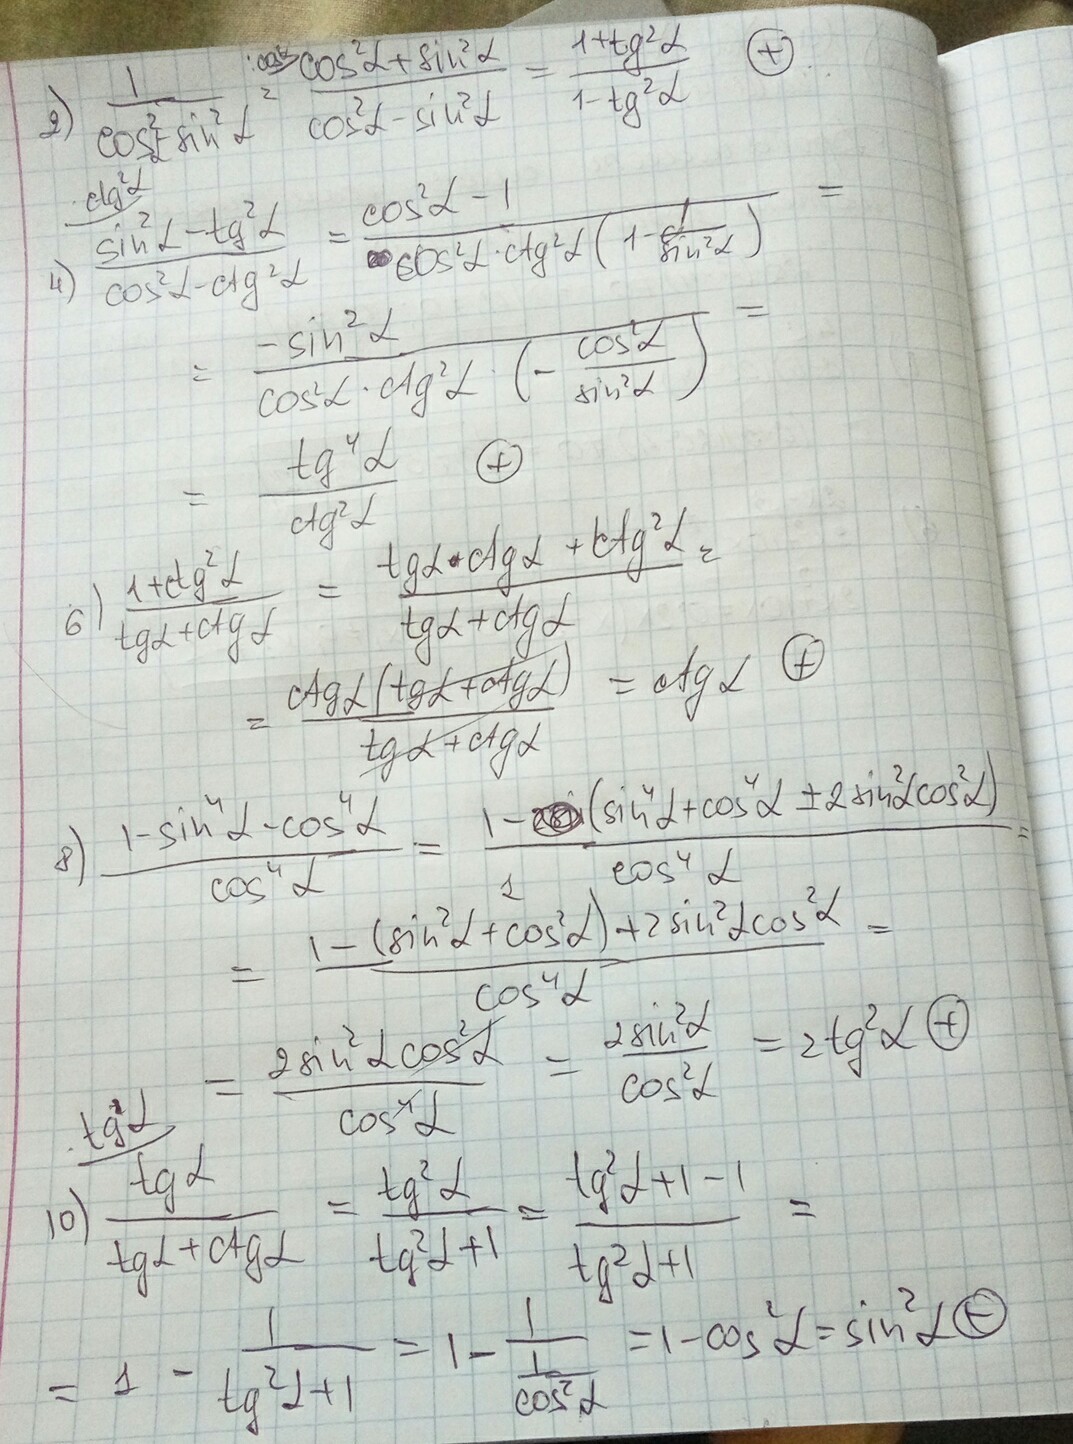 2) 1/(cos²α-sin²α) = (cos²α+sin²α)/(cos²α-sin²α) = (1+tg²α)/(1-tg²α) ⊕
·ctg²α
4) (sin²α-tg²α)/(cos²α-ctg²α) = (cos²α-1)/(cos²α·ctg²α(1-1/sin²α)) =
= (-sin²α)/(cos²α·ctg²α·(-cos²α/sin²α)) =
= tg⁴α/ctg²α ⊕
6) (1+ctg²α)/(tgα+ctgα) = (tgα·ctgα+ctg²α)/(tgα+ctgα) =
= ctgα(tgα+ctgα)/(tgα+ctgα) = ctgα ⊕
8) (1-sin⁴α-cos⁴α)/cos⁴α = (1-(sin⁴α+cos⁴α±2sin²αcos²α))/cos⁴α =
= (1-(sin²α+cos²α)²+2sin²αcos²α)/cos⁴α =
= 2sin²αcos²α/cos⁴α = 2sin²α/cos²α = 2tg²α ⊕
·tgα
10) tgα/(tgα+ctgα) = tg²α/(tg²α+1) = (tg²α+1-1)/(tg²α+1) =
= 1 - 1/(tg²α+1) = 1 - 1/(1/cos²α) = 1-cos²α = sin²α ⊕